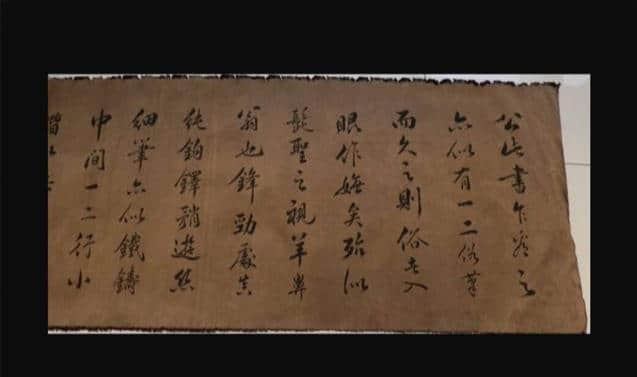 公此書乍看之
亦似有一二俗筆
而久之則俗者入
眼作嫵矣殆似
髭聖之視羊鼻
翁也鋒勁處真
純鉤鐸鞘遊絲
細筆亦似鐵鑄
中間一二行小